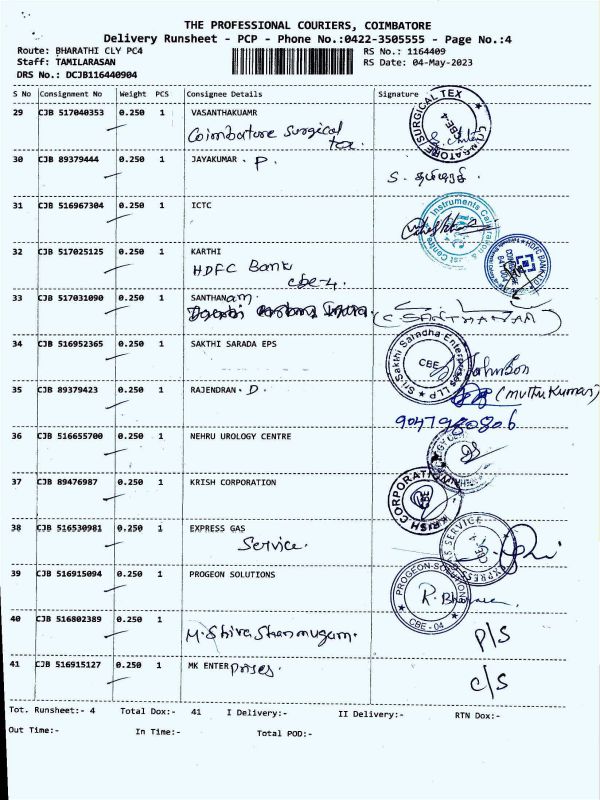 THE PROFESSIONAL COURIERS, COIMBATORE
Delivery Runsheet - PCP - Phone No.:0422-3505555 - Page No.:4
Route: BHARATHI CLY PC4 RS No.: 1164409
Staff: TAMILARASAN RS Date: 04-May-2023
DRS No.: DCJB116440904
S No Consignment No Weight PCS Consignee Details Signature
29 CJB 517040353 0.250 1 VASANTHAKUAMR
Coimbatore Surgical Tex
COIMBATORE SURGICAL TEX CBE-4
30 CJB 89379444 0.250 1 JAYAKUMAR . P.
S.
31 CJB 516967304 0.250 1 ICTC
Instruments Calibration & Test Centre
32 CJB 517025125 0.250 1 KARTHI
HDFC Bank
cbe-4.
HDFC BANK LTD
33 CJB 517031090 0.250 1 SANTHANam.
(C. SANTHANAM)
34 CJB 516952365 0.250 1 SAKTHI SARADA EPS
Sri Sakthi Saradha Enterprises LLP CBE
Johnson
35 CJB 89379423 0.250 1 RAJENDRAN . D.
(muthu Kumar)
9047980806
36 CJB 516655700 0.250 1 NEHRU UROLOGY CENTRE
37 CJB 89476987 0.250 1 KRISH CORPORATION
KRISH CORPORATION CBE
38 CJB 516530981 0.250 1 EXPRESS GAS
Service.
EXPRESS GAS SERVICE
39 CJB 516915094 0.250 1 PROGEON SOLUTIONS
PROGEON-SOLUTIONS CBE - 04
40 CJB 516802389 0.250 1
M. Shiva Shanmugam.
P/S
41 CJB 516915127 0.250 1 MK ENTERprises.
C/S
Tot. Runsheet:- 4 Total Dox:- 41 I Delivery:- II Delivery:- RTN Dox:-
Out Time:- In Time:- Total POD:-